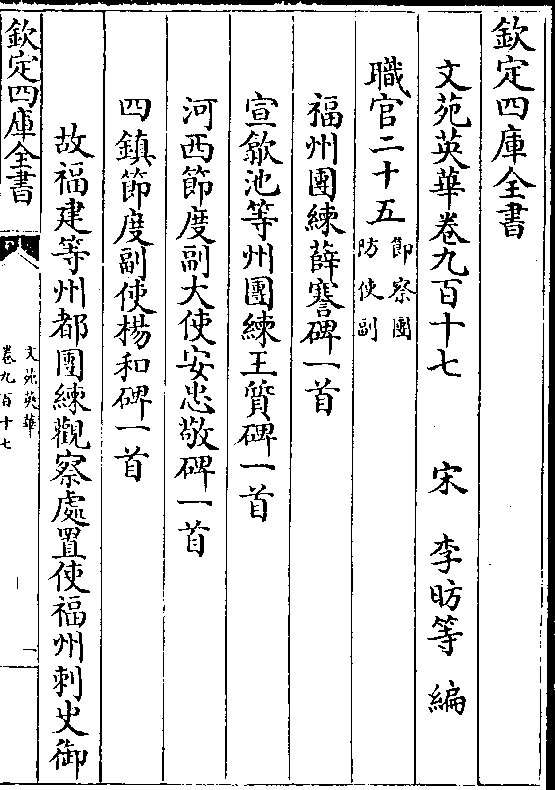 欽定四庫全書
文苑英華卷九百十七　宋　李昉等　編
職官二十五節察團防使副
福州團練薛謇碑一首
宣歙池等州團練王質碑一首
河西節度副大使安忠敬碑一首
四鎮節度副使楊和碑一首
故福建等州都團練觀察處置使福州刺史御
欽定四庫全書
文苑英華
卷九百十七
一